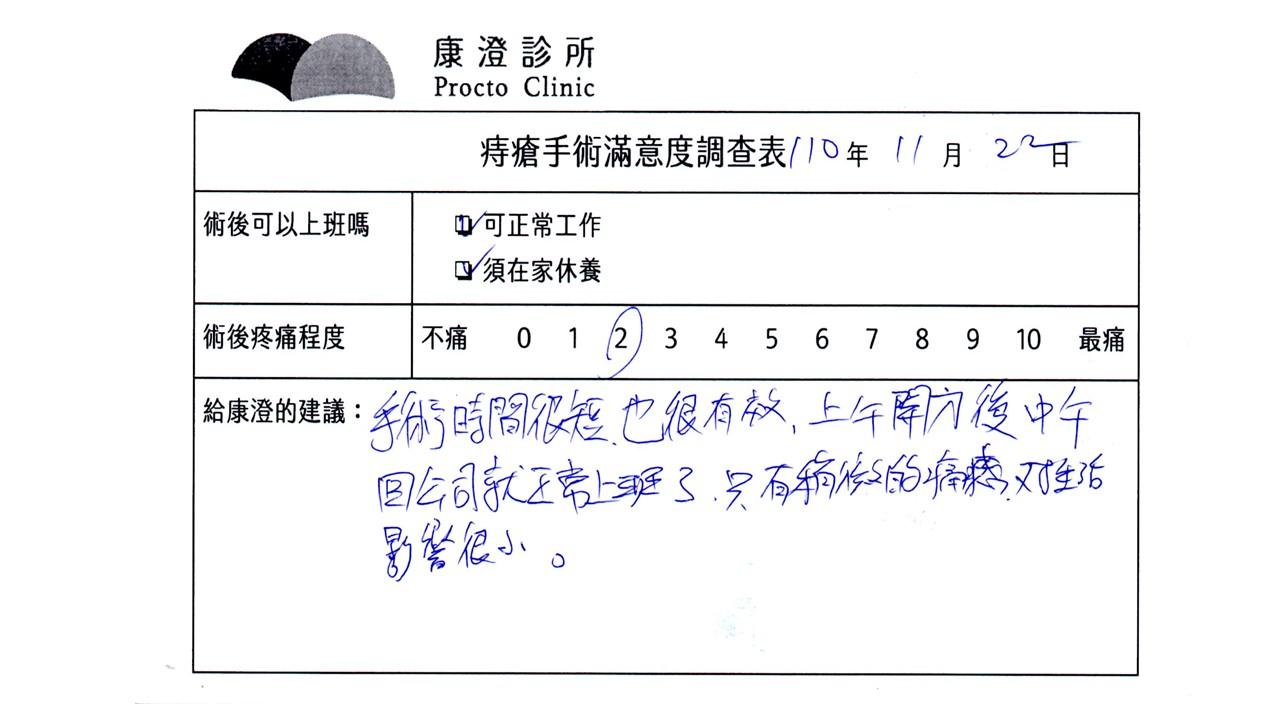 康澄診所
Procto Clinic
痔瘡手術滿意度調查表 110年 11月 22日
術後可以上班嗎
可正常工作
須在家休養
術後疼痛程度 不痛 0 1 2 3 4 5 6 7 8 9 10 最痛
給康澄的建議：手術時間很短.也很有效,上午開刀後中午
回公司就正常上班了.只有稍微的痛感,对生活
影響很小。